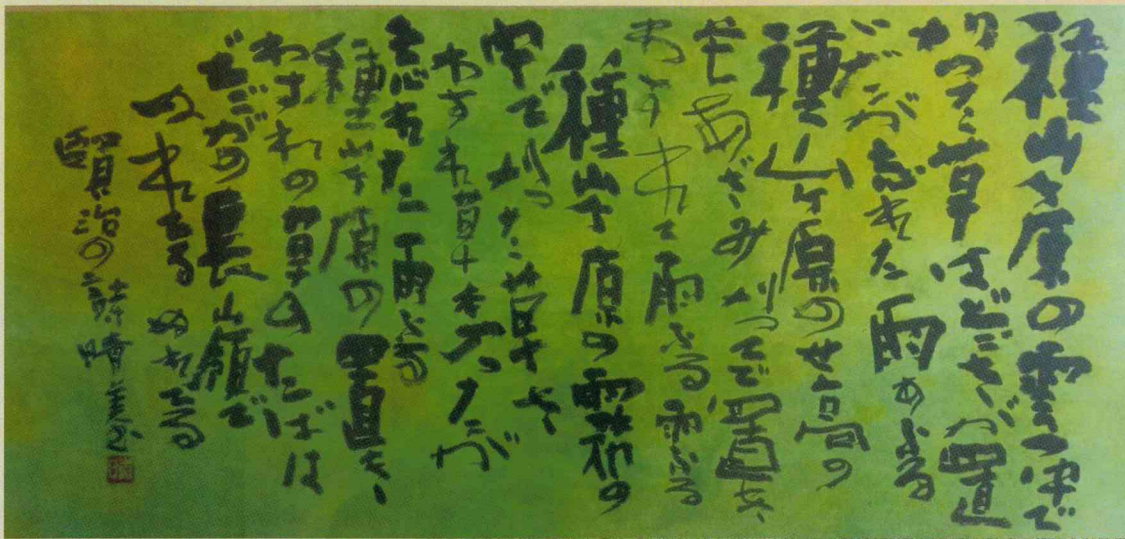 種山ヶ原の雲の中で
刈った草はどごさが置
いだが忘れた雨あふる
種山ヶ原のせ高の
芒あざみ刈ってで置ぎ、
わすれて雨ふる雨ふる
種山ヶ原の霧の
中で刈った草さ
わすれ草も入ったが
忘れた雨ふる
種山ヶ原の置ぎ、
わすれの草のたばは
どごがの長嶺で
ぬれでるぬれでる
賢治の詩